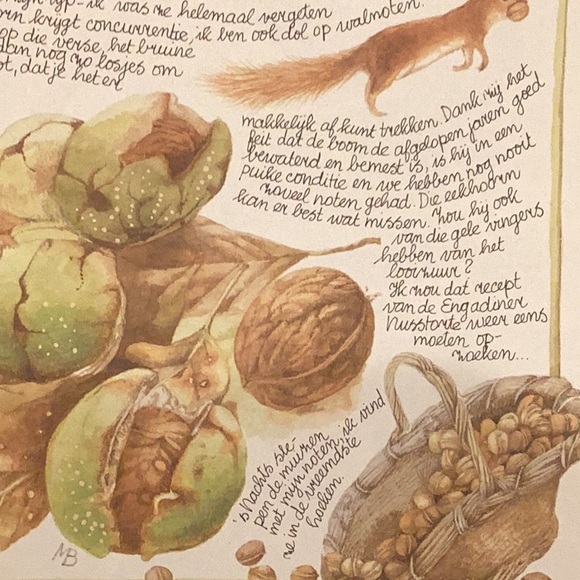 ik was ze helemaal vergeten
krijgt concurrentie, ik ben ook dol op walnoten.
op die verse, het bruine
dan nog zo losjes om
dat je het er
makkelijk af kunt trekken. Dank zij het
feit dat de boom de afgelopen jaren goed
bewaterd en bemest is, is hij in een
puike conditie en we hebben nog nooit
zoveel noten gehad. Die eekhoorn
kan er best wat missen. Zou hij ook
van die gele vingers
hebben van het
looizuur?
Ik zou dat recept
van de Engadiner
Nusstorte weer eens
moeten op-
zoeken...
's Nachts sle-
pen de muizen
met mijn noten, ik vind
ze in de vreemdste
hoeken.
MB